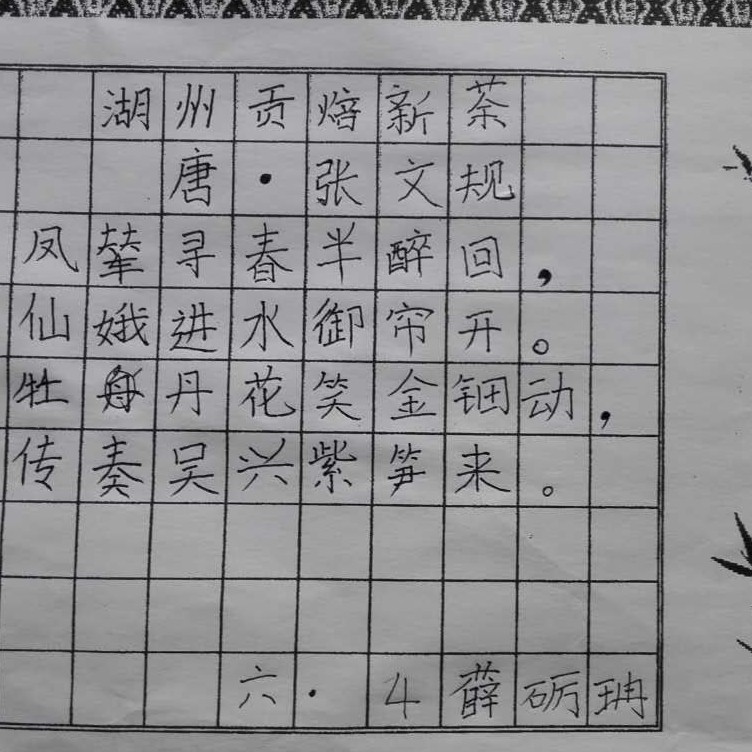 湖州贡焙新茶
唐·张文规
凤辇寻春半醉回，
仙娥进水御帘开。
牡丹花笑金钿动，
传奏吴兴紫笋来。
六·4薛砺珃